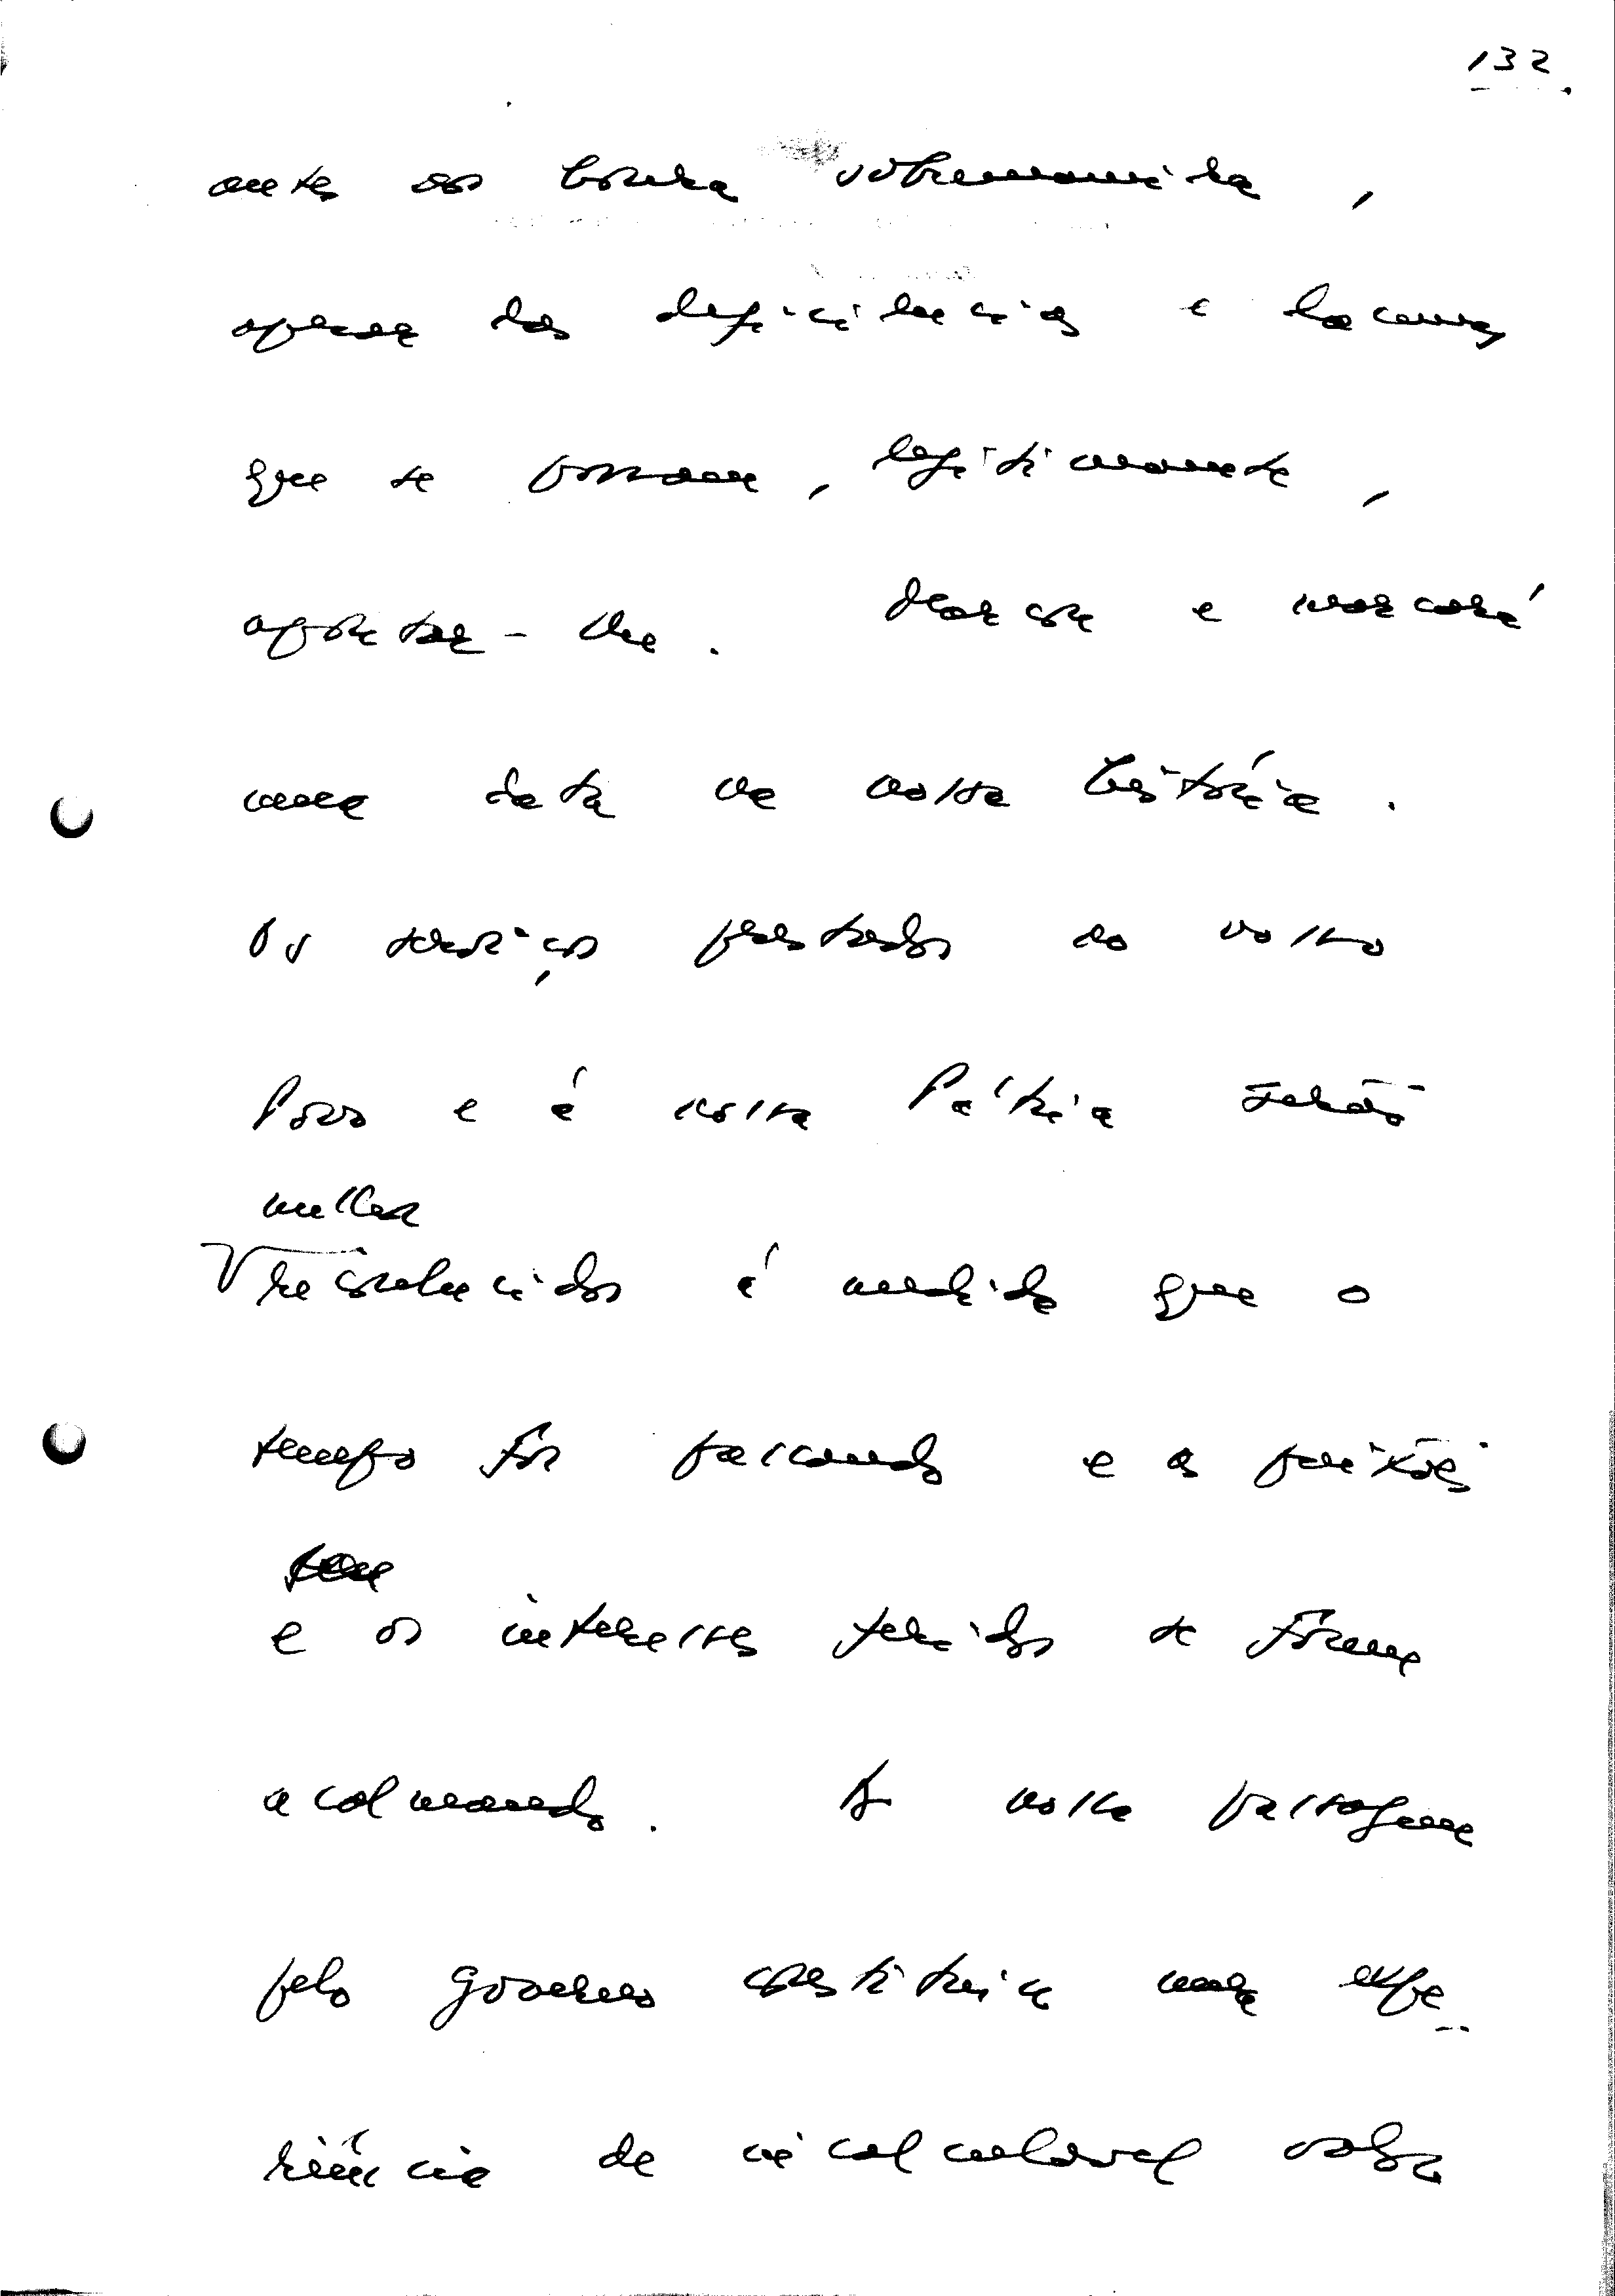 132
antes os honra sobremaneira,
apesar das deficiências e lacunas
que se possam, legitimamente,
apontar-lhe. Marca e marcará
uma data na nossa história.
Os serviços prestados ao nosso
Povo e à nossa Pátria serão
melhor
reconhecidos à medida que o
tempo for passando e as paixões
e os interesses feridos se forem
acalmando. A nossa passagem
pelo governo constituiu uma expe
riência de incalculável valor